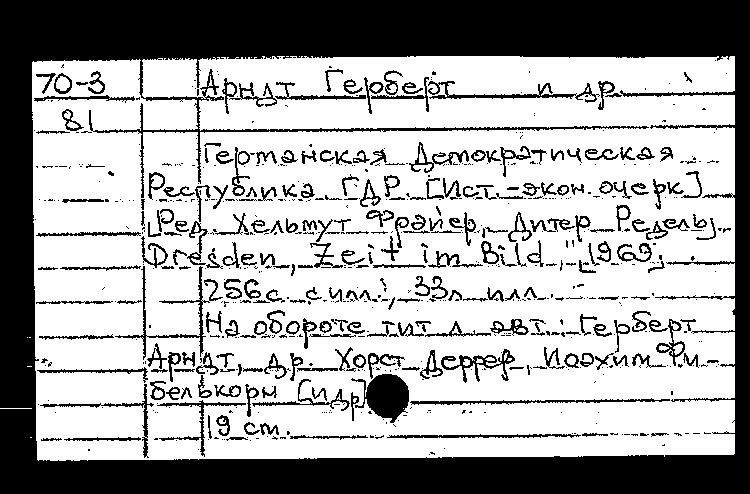 70-3 Арндт Герберт и др.
81
Германская Демократическая
Республика. ГДР. [Ист.-экон. очерк]
[Ред. Хельмут Фрайер, Дитер Редель].
Dresden, "Zeit im Bild," [1969].
256с. с илл., 33л илл.
На обороте тит. л. авт.: Герберт
Арндт, др. Хорст Деррер, Иоахим Фи-
белькорн [и др]
19 cm.